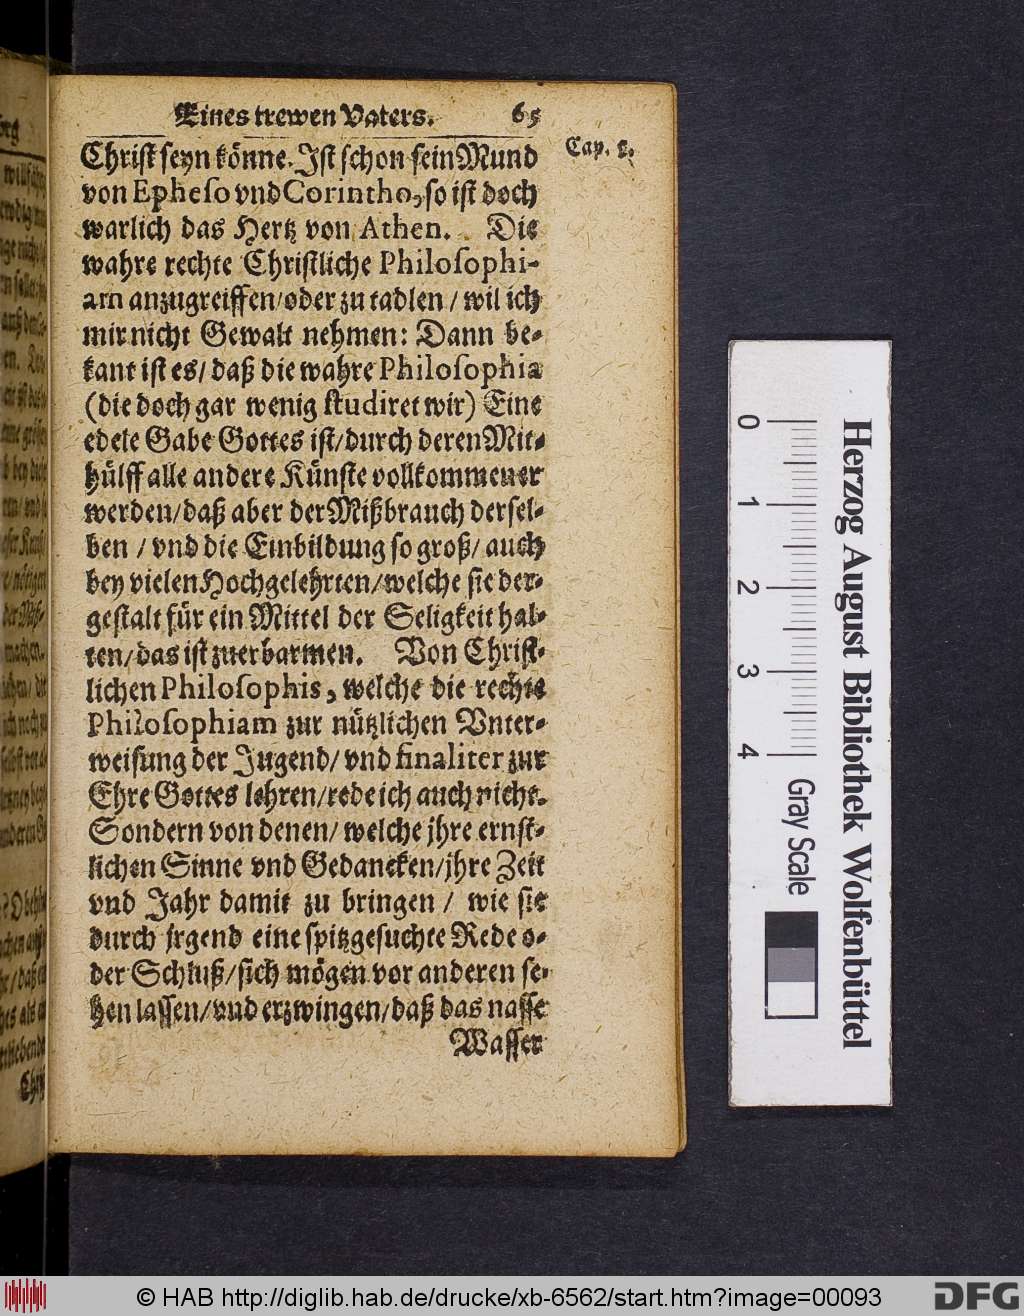 Eines trewen Vaters. 65
Cap. 8.
Chriſt ſeyn könne. Iſt ſchon ſein Mund
von Epheſo vnd Corintho, ſo iſt doch
warlich das Hertz von Athen. Die
wahre rechte Chriſtliche Philoſophi-
am anzugreiffen/oder zu tadlen / wil ich
mir nicht Gewalt nehmen: Dann be-
kant iſt es/ daß die wahre Philoſophia
(die doch gar wenig ſtudiret wir) Eine
edele Gabe Gottes iſt/durch deren Mit-
hülff alle andere Künſte vollkommener
werden/daß aber der Mißbrauch derſel-
ben / vnd die Einbildung ſo groß/ auch
bey vielen Hochgelehrten/welche ſie der-
geſtalt für ein Mittel der Seligkeit hal-
ten/das iſt zuerbarmen. Von Chriſt-
lichen Philoſophis, welche die rechte
Philoſophiam zur nützlichen Vnter-
weiſung der Jugend/ vnd finaliter zur
Ehre Gottes lehren/rede ich auch nicht.
Sondern von denen/ welche jhre ernſt-
lichen Sinne vnd Gedancken/jhre Zeit
vnd Jahr damit zu bringen / wie ſie
durch jrgend eine ſpitzgeſuchte Rede o-
der Schluß/ſich mögen vor anderen ſe-
hen laſſen/vnd erzwingen/daß das naſſe
Waſſer
0 1 2 3 4
Gray Scale
Herzog August Bibliothek Wolfenbüttel
© HAB http://diglib.hab.de/drucke/xb-6562/start.htm?image=00093
DFG